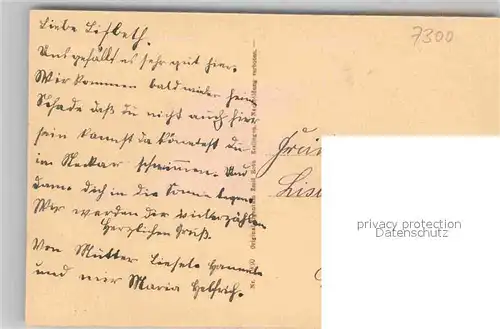 Liebe Lisbeth.
Uns gefällt es sehr gut hier.
Wir kommen bald wieder heim
Schade daß du nicht auch hier
sein kannst da könntest Du
im Neckar schwimmen. Und
dann dich in die Sonne legen.
Wir werden dir viel erzählen
Herzlichen Gruß.
Von Mutter Liesele
und mir Maria Helfrich.
7300
Nachbildung verboten.
privacy protection
Datenschutz